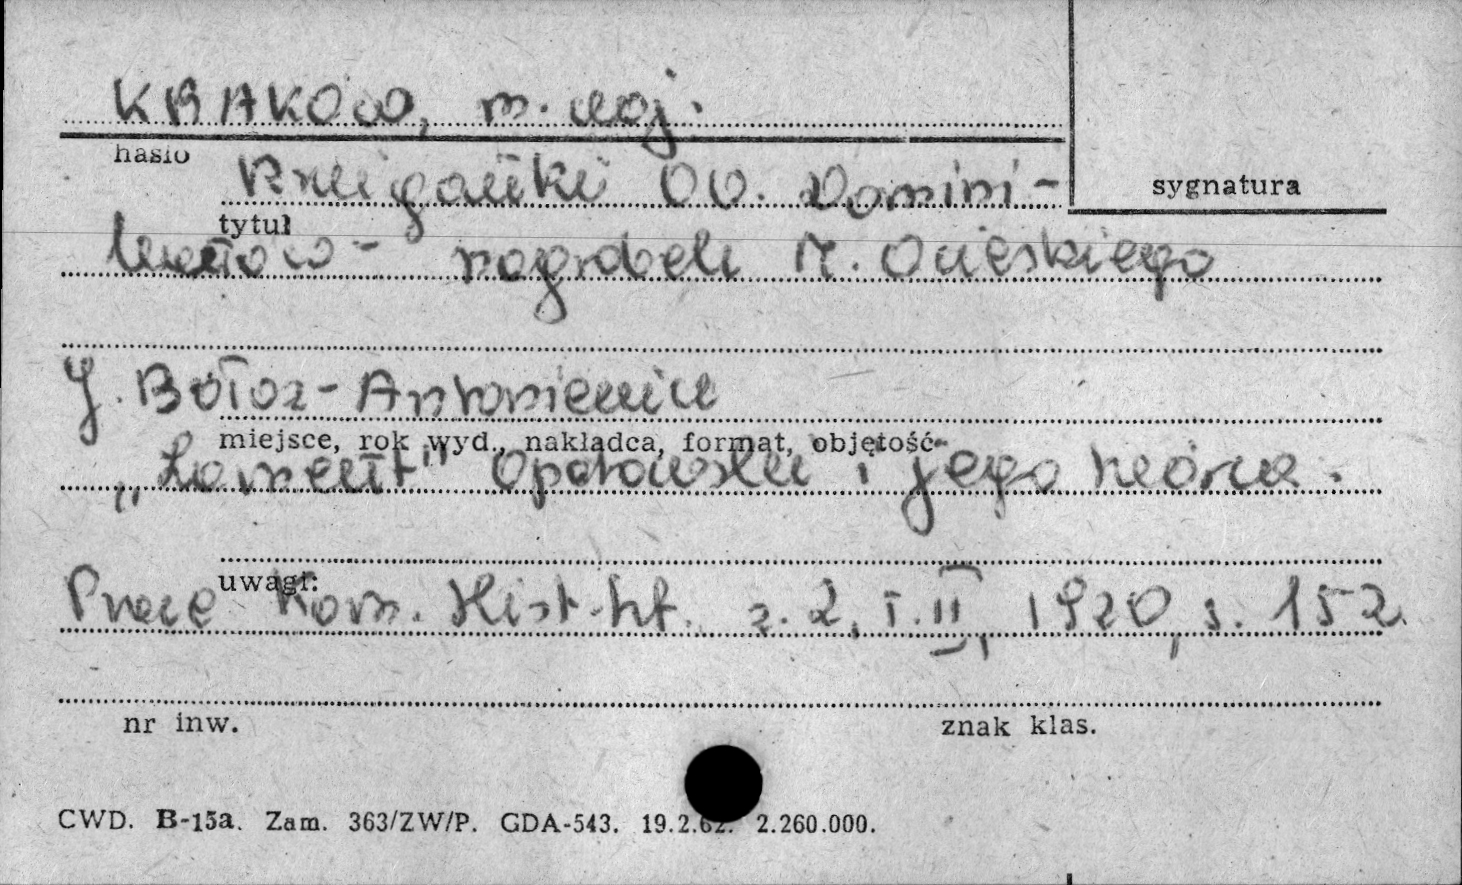 KRAKÓW, m. woj.
hasło
Krużganki OO. Domini-
sygnatura
tytuł
kanów - nagrobek M. Ocieskiego
J. Bołoz-Antoniewicz
miejsce, rok wyd., nakładca, format, objętość
„Lament" Opatowski i jego twórca.
uwagi:
Prace Kom. Hist. Szt. z. 2, T. II, 1920, s. 152
nr inw.
znak klas.
CWD. B-15a. Zam. 363/ZW/P. GDA-543. 19.2.62. 2.260.000.